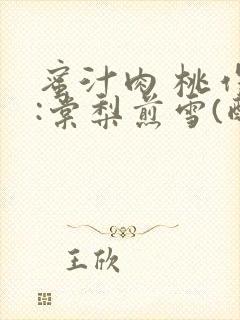 蜜汁肉桃作
:棠梨煎雪(
王欣